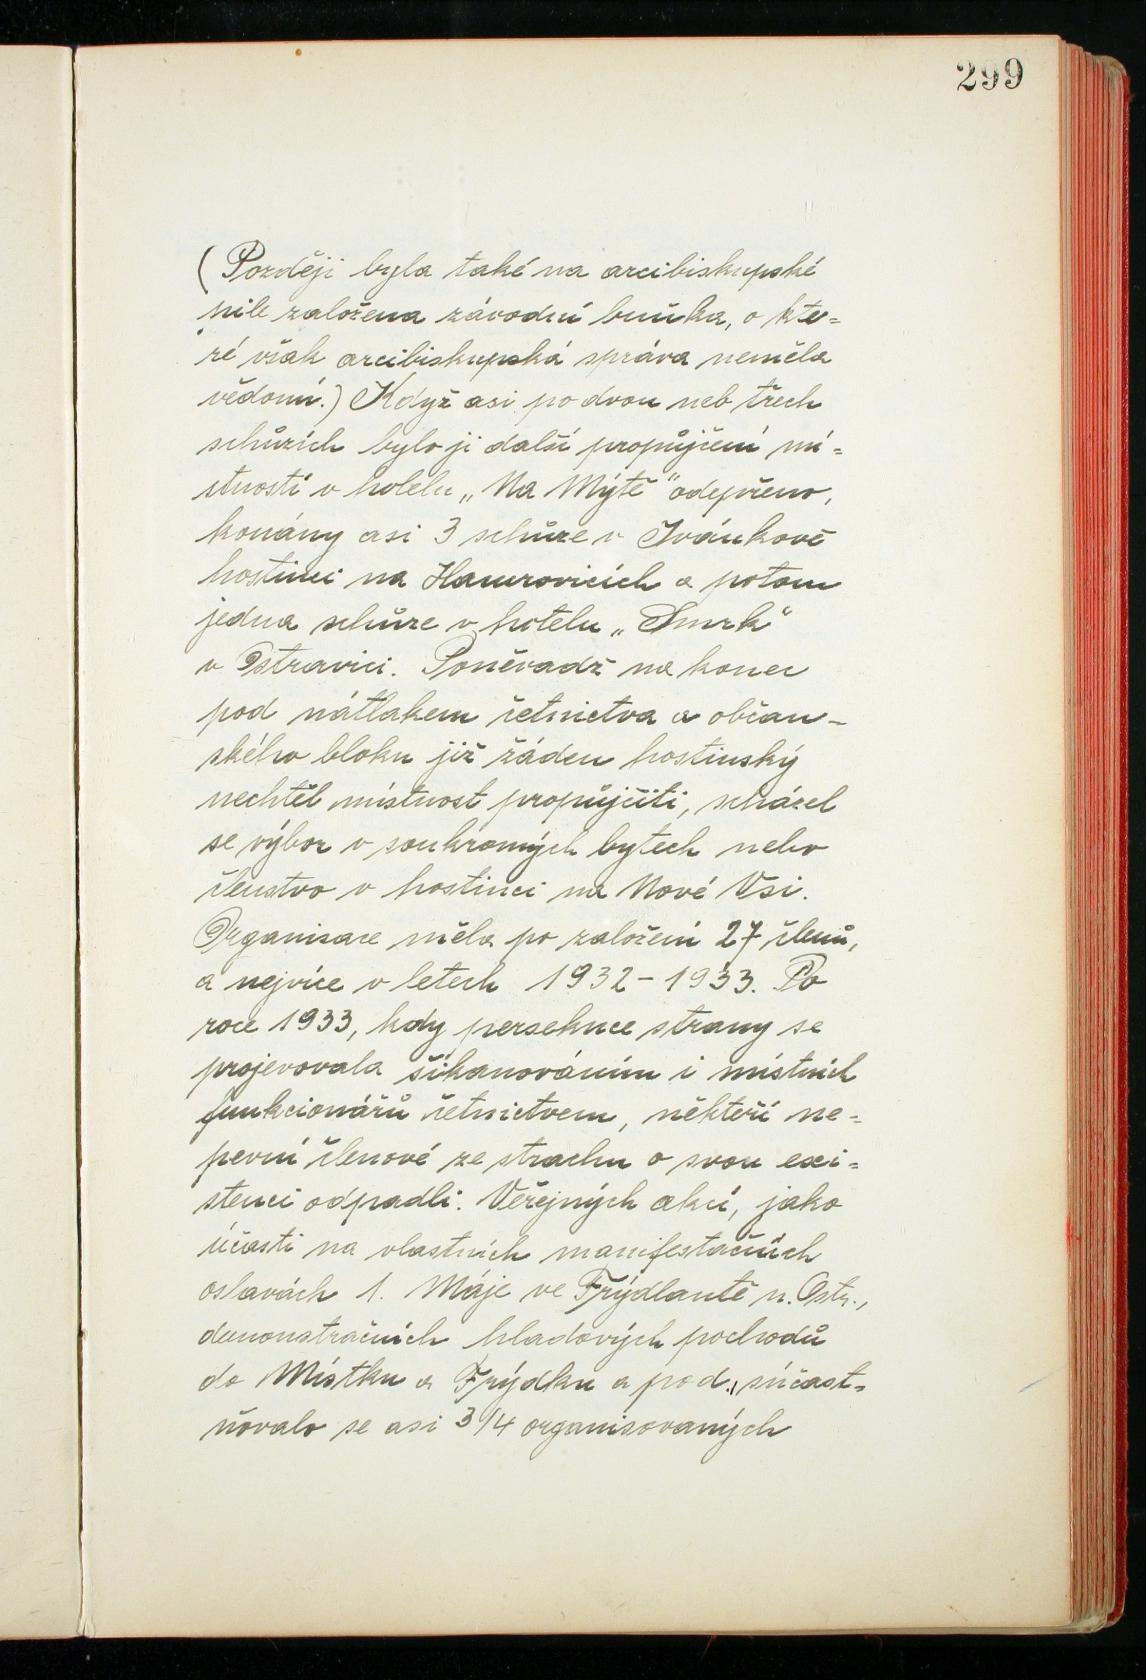 299
(Později byla také na arcibiskupské
pile založena závodní buňka, o kte=
ré však arcibiskupská správa neměla
vědomí.) Když asi po dvou neb třech
schůzích bylo ji další propůjčení mí=
stností v hotelu „Na Mýtě" odepřeno,
konány asi 3 schůze v Ivánkově
hostinci na Hamrovicích a potom
jedna schůze v hotelu „Smrk"
v Ostravici. Poněvadž na konec
pod nátlakem četnictva a občan-
ského bloku již žáden hostinský
nechtěl místnost propůjčiti, scházel
se výbor v soukromých bytech nebo
členstvo v hostinci na Nové Vsi.
Organisace měla po založení 27 členů,
a nejvíce v letech 1932-1933. Po
roce 1933, kdy persekuce strany se
projevovala šikanováním i místních
funkcionářů četnictvem, někteří ne=
pevní členové ze strachu o svou exi=
stenci odpadli. Veřejných akcí, jako
účasti na vlastních manifestačních
oslavách 1. Máje ve Frýdlantě n. Ostr.,
demonstračních hladových pochodů
do Místku a Frýdku a pod., súčast=
ňovalo se asi 3/4 organisovaných